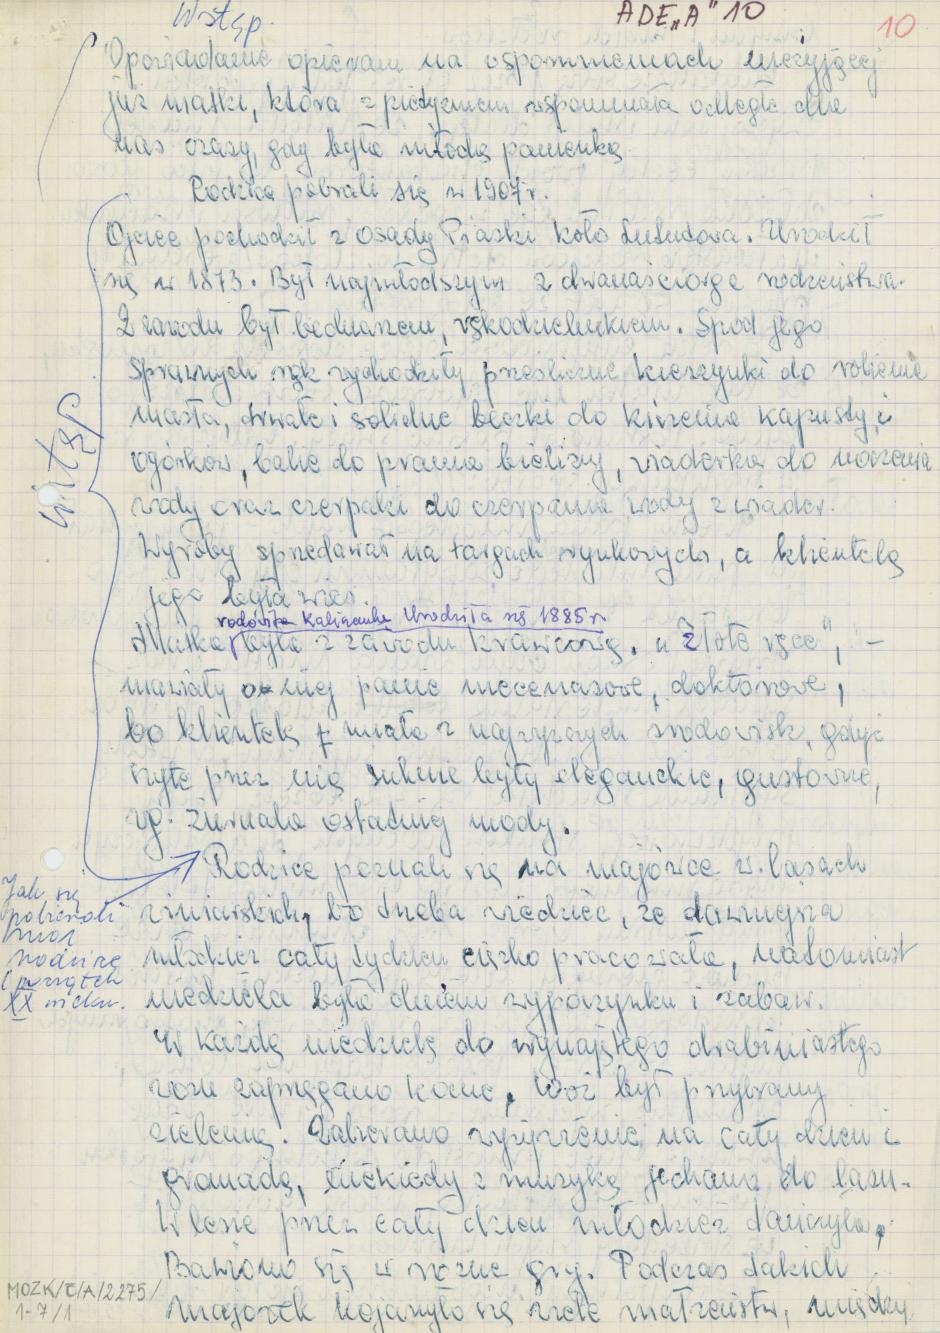 Wstęp.
ADE „A" 10
10
Opowiadanie opieram na wspomnieniach nieżyjącej
już matki, która z pietyzmem wspominała odległe dla
nas czasy, gdy była młodą panienką
Rodzice pobrali się w 1907 r.
Ojciec pochodził z osady Piaski koło Lututowa. Urodził
się w 1873. Był najmłodszym z dwanaściorga rodzeństwa.
Z zawodu był bednarzem, rękodzielnikiem. Spod jego
sprawnych rąk wychodziły prześliczne kierzynki do robienia
masła, trwałe i solidne beczki do kiszenia kapusty i
ogórków, balie do prania bielizny, wiaderka do noszenia
wody oraz czerpaki do czerpania wody z wiader.
Wyroby sprzedawał na targach rynkowych, a klientelą
jego była wieś.
rodowita Kaliszanka Urodziła się 1885 r.
Matka była z zawodu krawcową. „Złote ręce", –
mawiały o niej panie mecenasowe, doktorowe,
bo klientelę miała z najwyższych środowisk, gdyż
szyte przez nią suknie były eleganckie, gustowne,
wg. żurnala ostatniej mody.
Wstęp
Rodzice poznali się na majówce w lasach
winiarskich, bo trzeba wiedzieć, że dawniejsza
młodzież cały tydzień ciężko pracowała, natomiast
niedziela była dniem wypoczynku i zabaw.
Jak się
pobierali
moi
rodzice
i początek
XX wieku.
W każdą niedzielę do wynajętego drabiniastego
wozu zaprzęgano konie, wóz był przybrany
zielenią. Zabierano wyżywienie na cały dzień i
gromadą, niekiedy z muzyką jechano do lasu.
W lesie przez cały dzień młodzież tańczyła,
Bawiono się w różne gry. Podczas takich
majówek kojarzyło się wiele małżeństw, między
MOZK/E/A/2275/
1-7/1